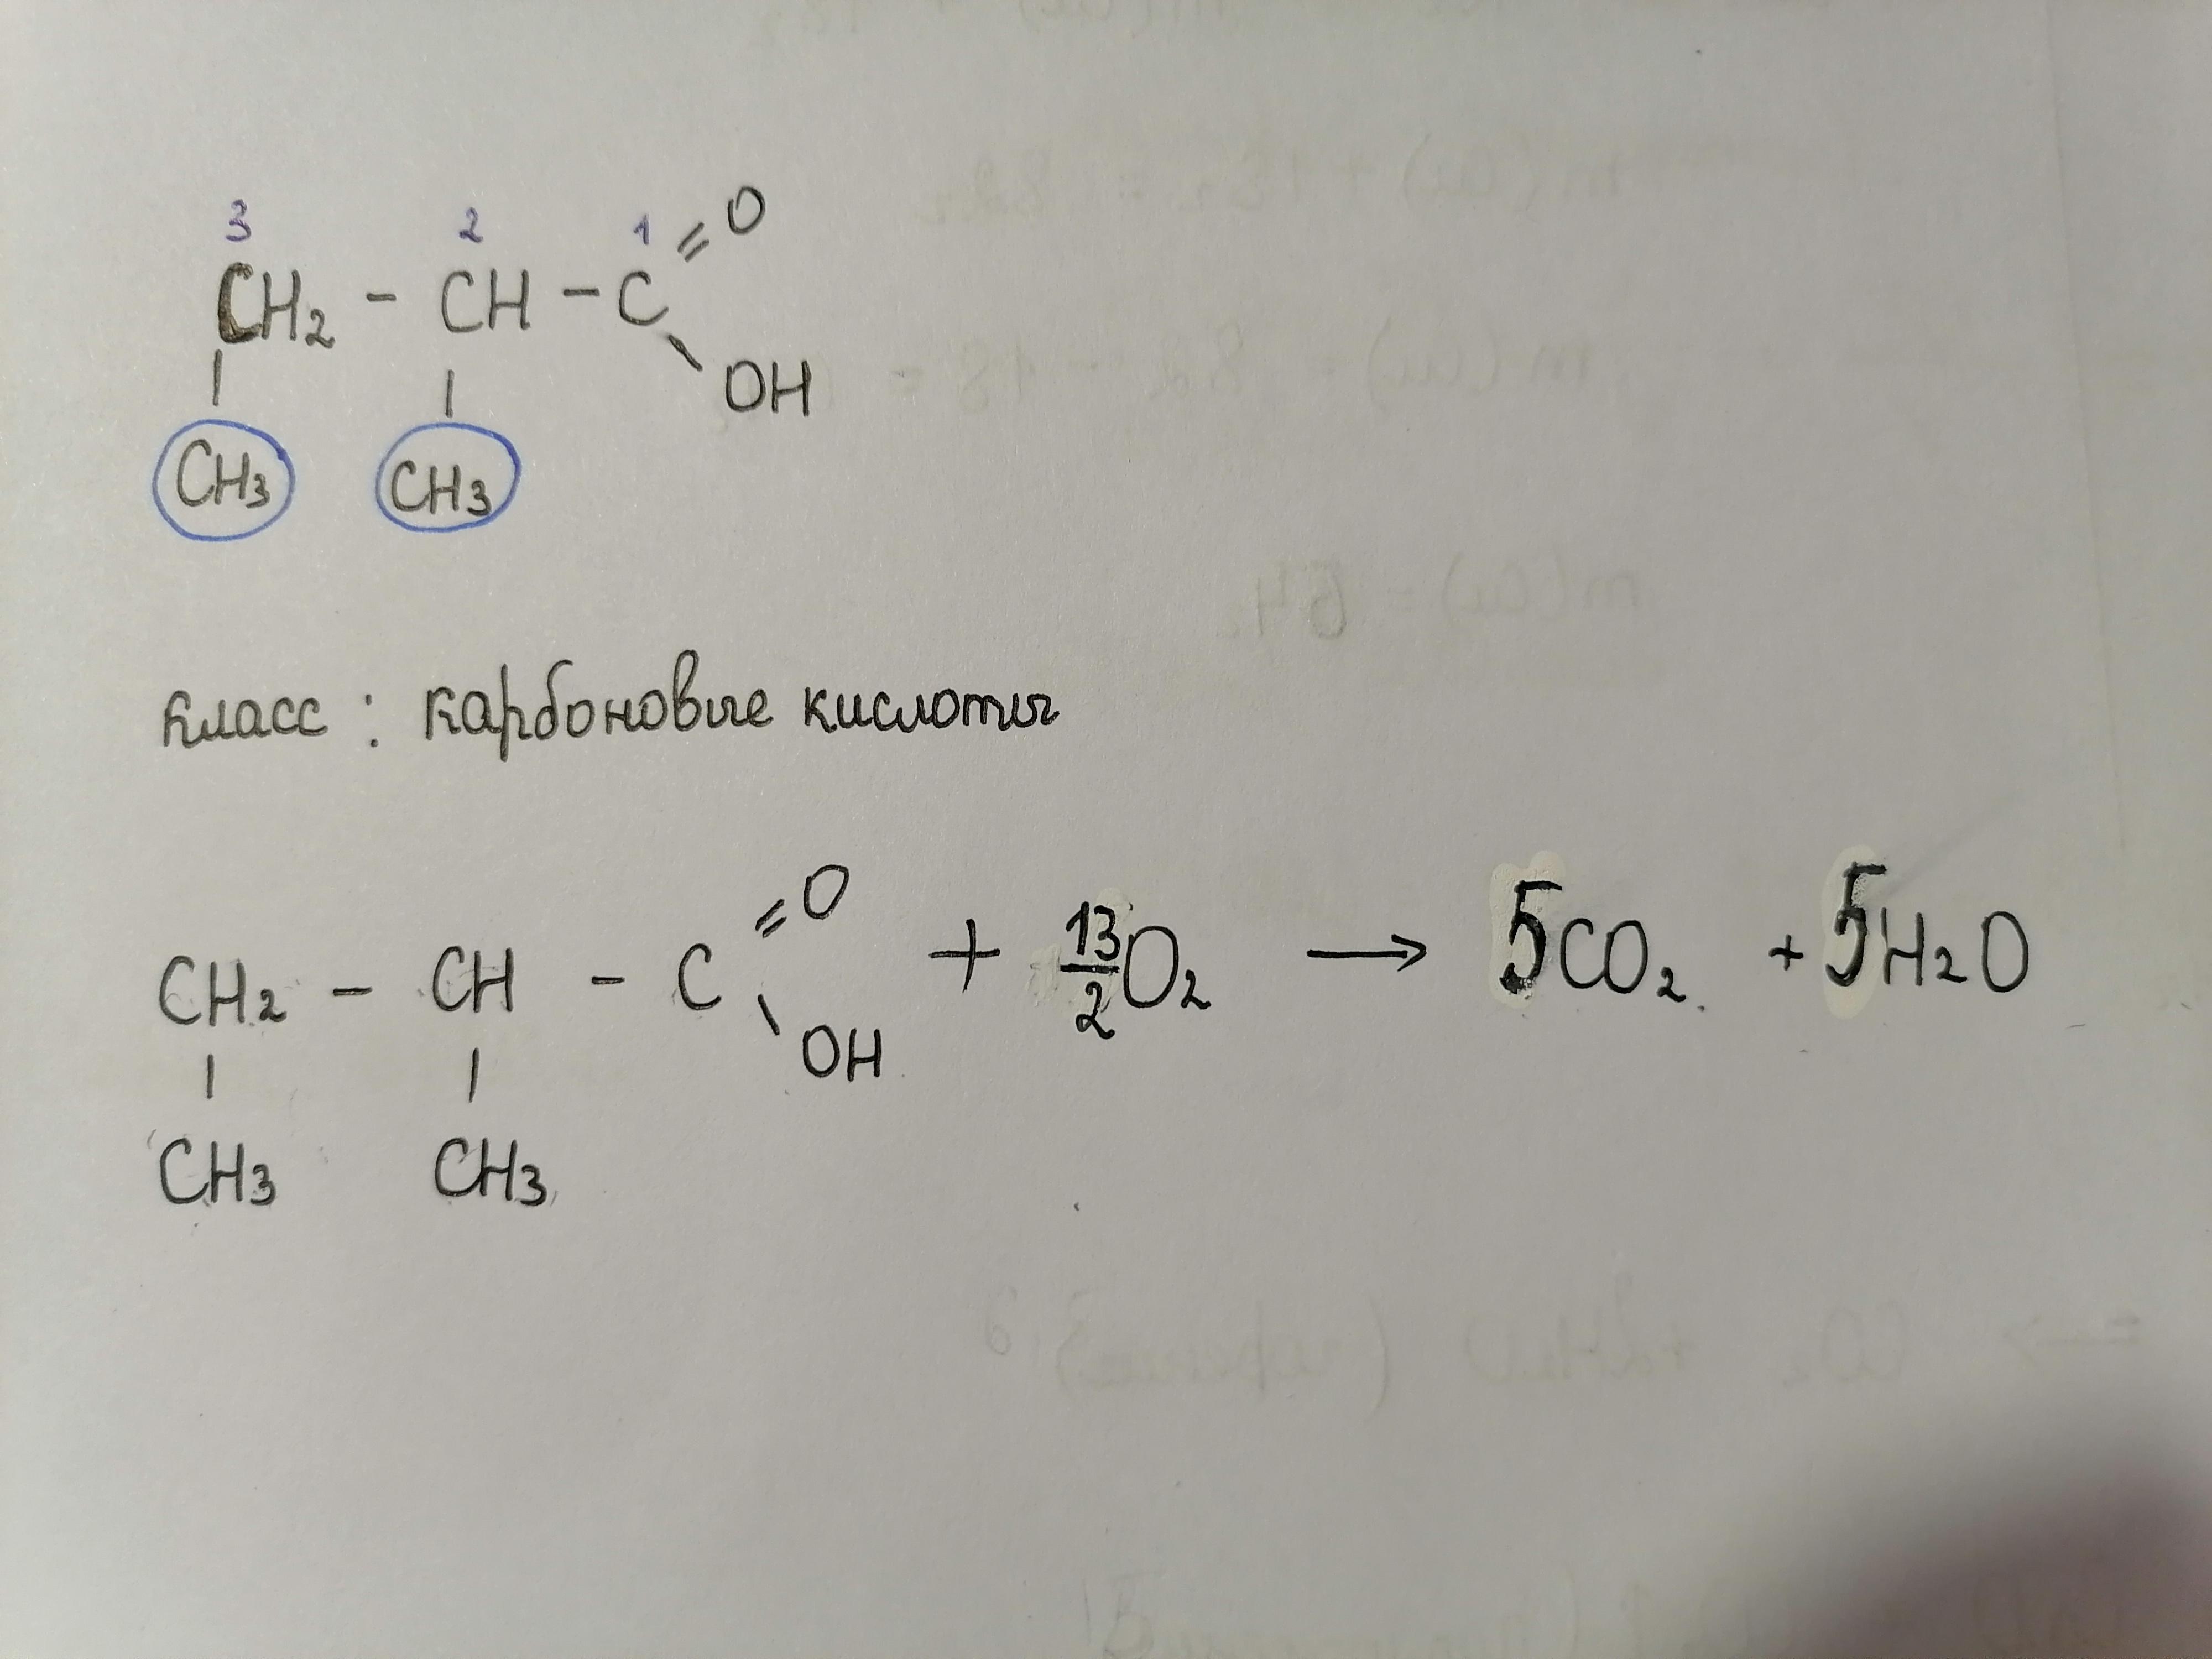 3 2 1 O
CH2 - CH - C
OH
CH3 CH3
Класс : карбоновые кислоты
O
CH2 - CH - C + 13/2 O2 → 5CO2 + 5H2O
OH
CH3 CH3